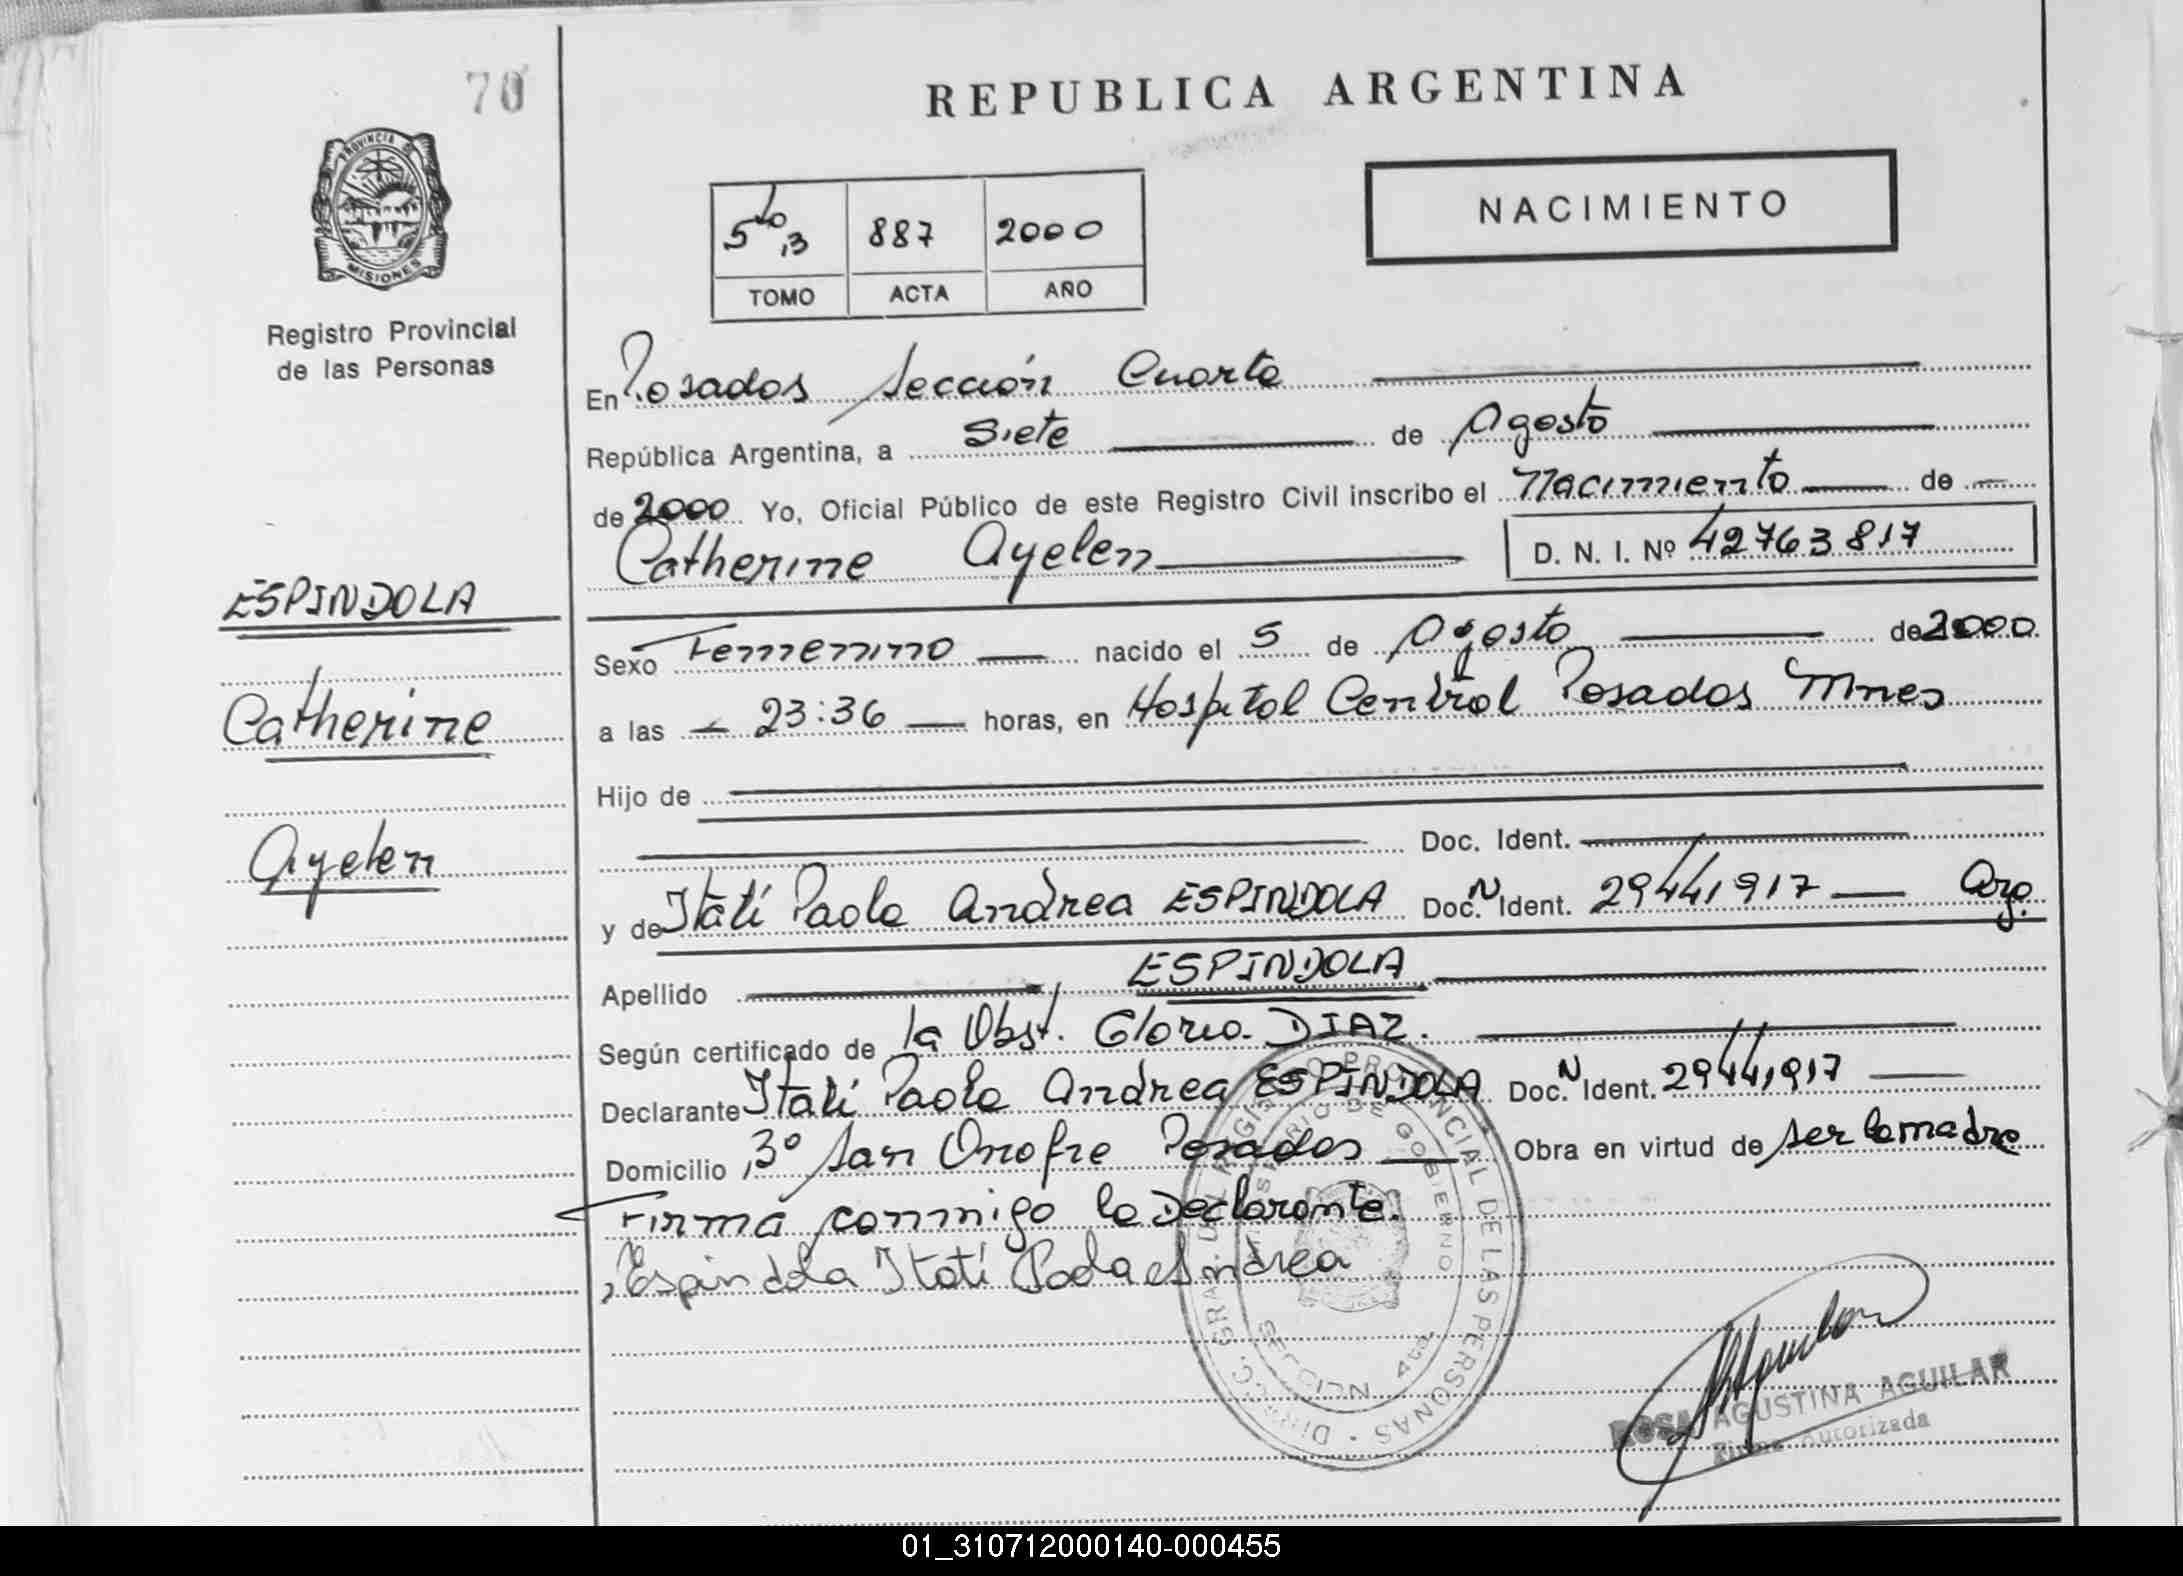 70
REPUBLICA ARGENTINA
PROVINCIA DE
MISIONES
Registro Provincial
de las Personas
5to ,3 887 2000
TOMO ACTA AÑO
NACIMIENTO
En Posadas Sección Cuarta
República Argentina, a Siete de Agosto
de 2000 Yo, Oficial Público de este Registro Civil inscribo el Nacimiento de
Catherine Ayelen D. N. I. Nº 42763817
ESPINDOLA
Catherine
Ayelen
Sexo Femenino nacido el 5 de Agosto de 2000
a las 23:36 horas, en Hospital Central Posadas Mnes
Hijo de
Doc. Ident.
y de Itatí Paola Andrea ESPINDOLA Doc. N Ident. 29441917 Arg.
Apellido ESPINDOLA
Según certificado de la Obst. Gloria DIAZ.
Declarante Itatí Paola Andrea ESPINDOLA Doc. N Ident. 29441917
Domicilio 3º San Onofre Posadas Obra en virtud de ser la madre
Firma conmigo la Declarante.
Espindola Itatí Paola Andrea
DIRECC. GRAL. DEL REGISTRO PROVINCIAL DE LAS PERSONAS
MINISTERIO DE GOBIERNO
SECCION 4ta.
ROSA AGUSTINA AGUILAR
Firma Autorizada
01_310712000140-000455